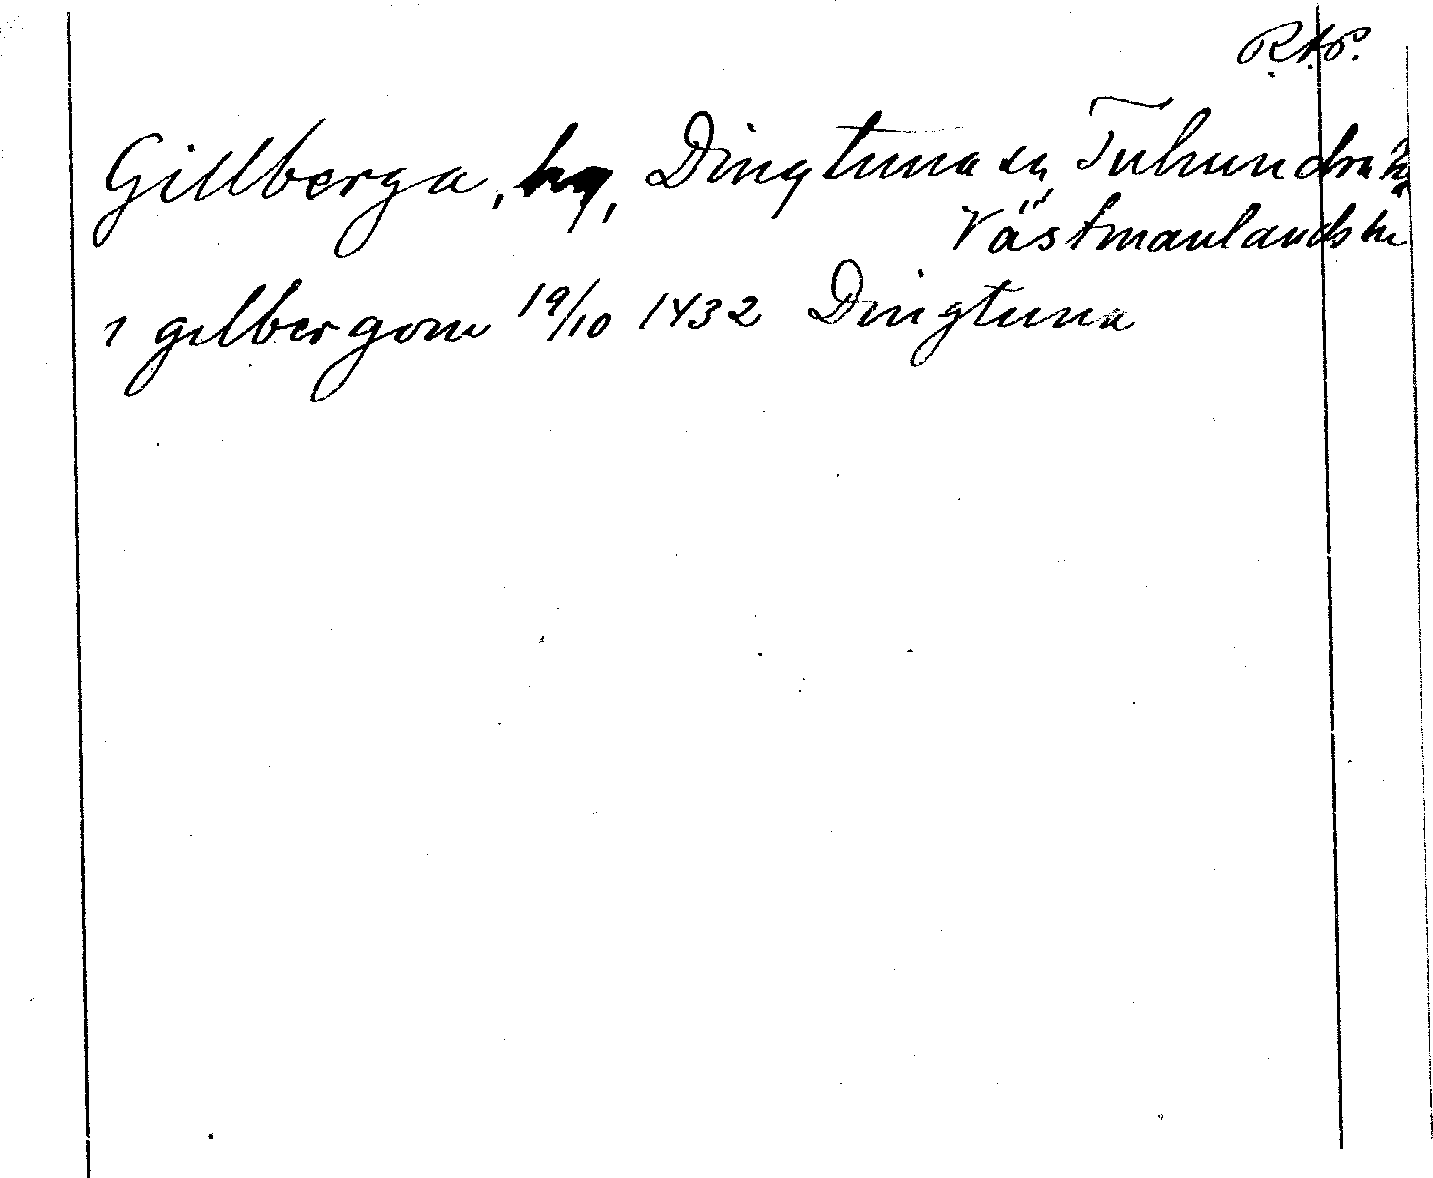 R.A.P.
Gillberga, by, Dingtuna sn, Tuhundra hd
Västmanlands län
i gilbergom 19/10 1432 Dingtuna